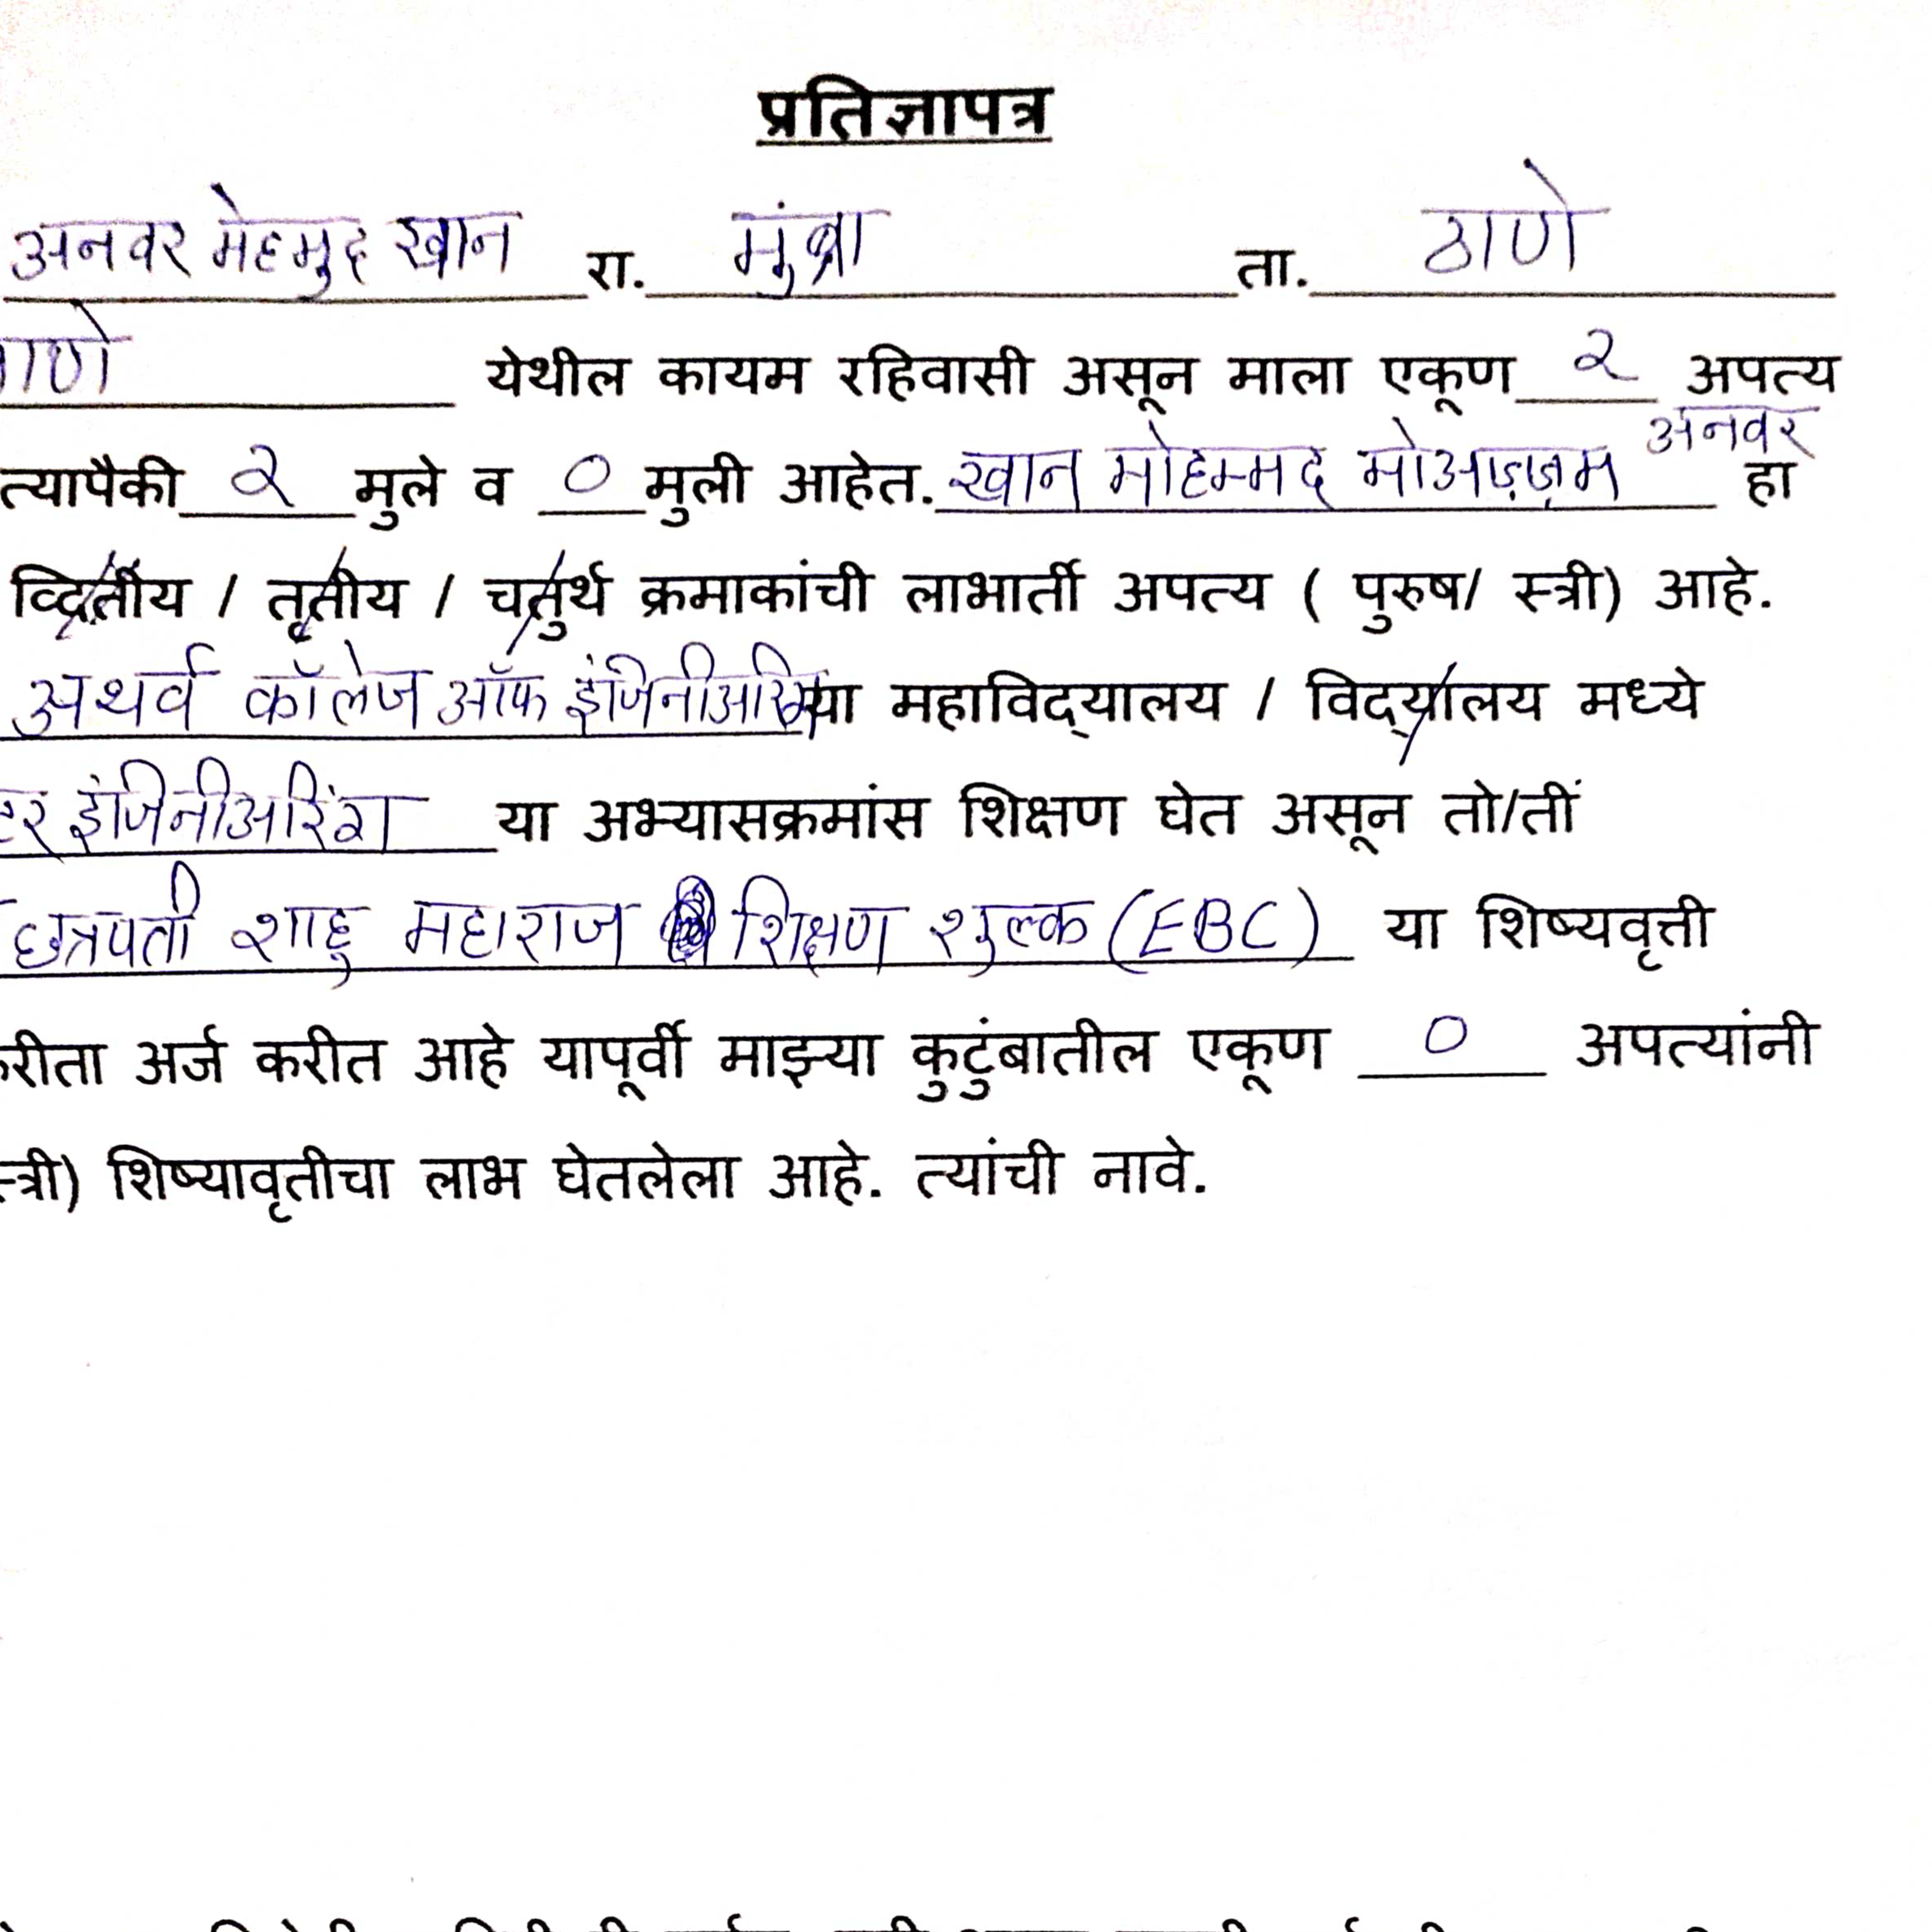 प्रतिज्ञापत्र
अनवर मेहमुद खान रा. मुंब्रा ता. ठाणे
येथील कायम रहिवासी असून माला एकूण २ अपत्य
त्यापैकी २ मुले व ० मुली आहेत. खान मोहम्मद मोअज़्ज़म अनवर हा
व्दितीय / तृतीय / चतुर्थ क्रमाकांची लाभार्ती अपत्य ( पुरुष/ स्त्री) आहे.
अथर्व कॉलेज ऑफ इंजिनीअरिंग या महाविद्यालय / विद्यालय मध्ये
इंजिनीअरिंग या अभ्यासक्रमांस शिक्षण घेत असून तो/तीं
छत्रपती शाहु महाराज शिक्षण शुल्क (EBC) या शिष्यवृत्ती
रीता अर्ज करीत आहे यापूर्वी माझ्या कुटुंबातील एकूण ० अपत्यांनी
स्त्री) शिष्यावृतीचा लाभ घेतलेला आहे. त्यांची नावे.